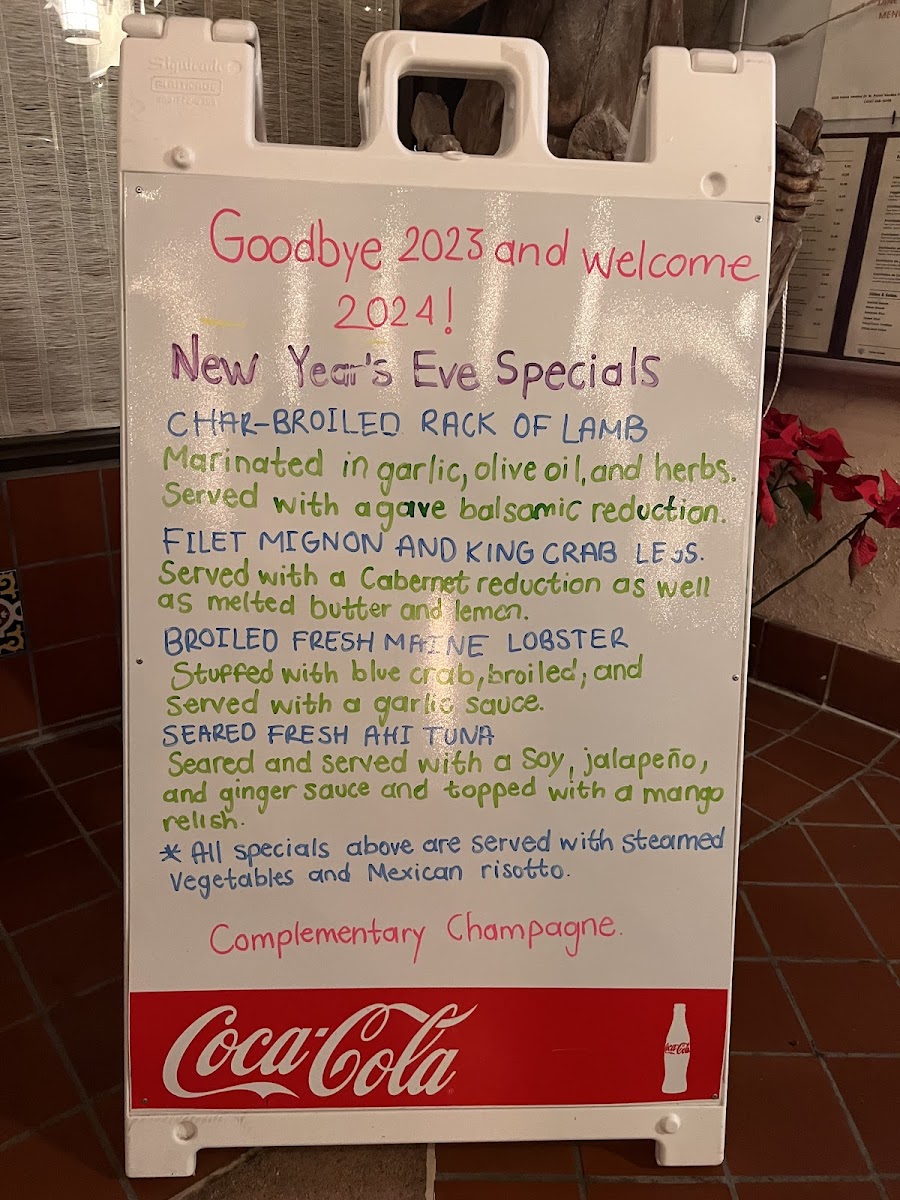 Signicade
Goodbye 2023 and welcome
2024!
New Year's Eve Specials
CHAR-BROILED RACK OF LAMB
Marinated in garlic, olive oil, and herbs.
Served with agave balsamic reduction.
FILET MIGNON AND KING CRAB LEGS.
Served with a Cabernet reduction as well
as melted butter and lemon.
BROILED FRESH MAINE LOBSTER
Stuffed with blue crab, broiled, and
served with a garlic sauce.
SEARED FRESH AHI TUNA
Seared and served with a Soy, jalapeño,
and ginger sauce and topped with a mango
relish.
* All specials above are served with steamed
Vegetables and Mexican risotto.
Complementary Champagne.
Coca-Cola
Coca-Cola